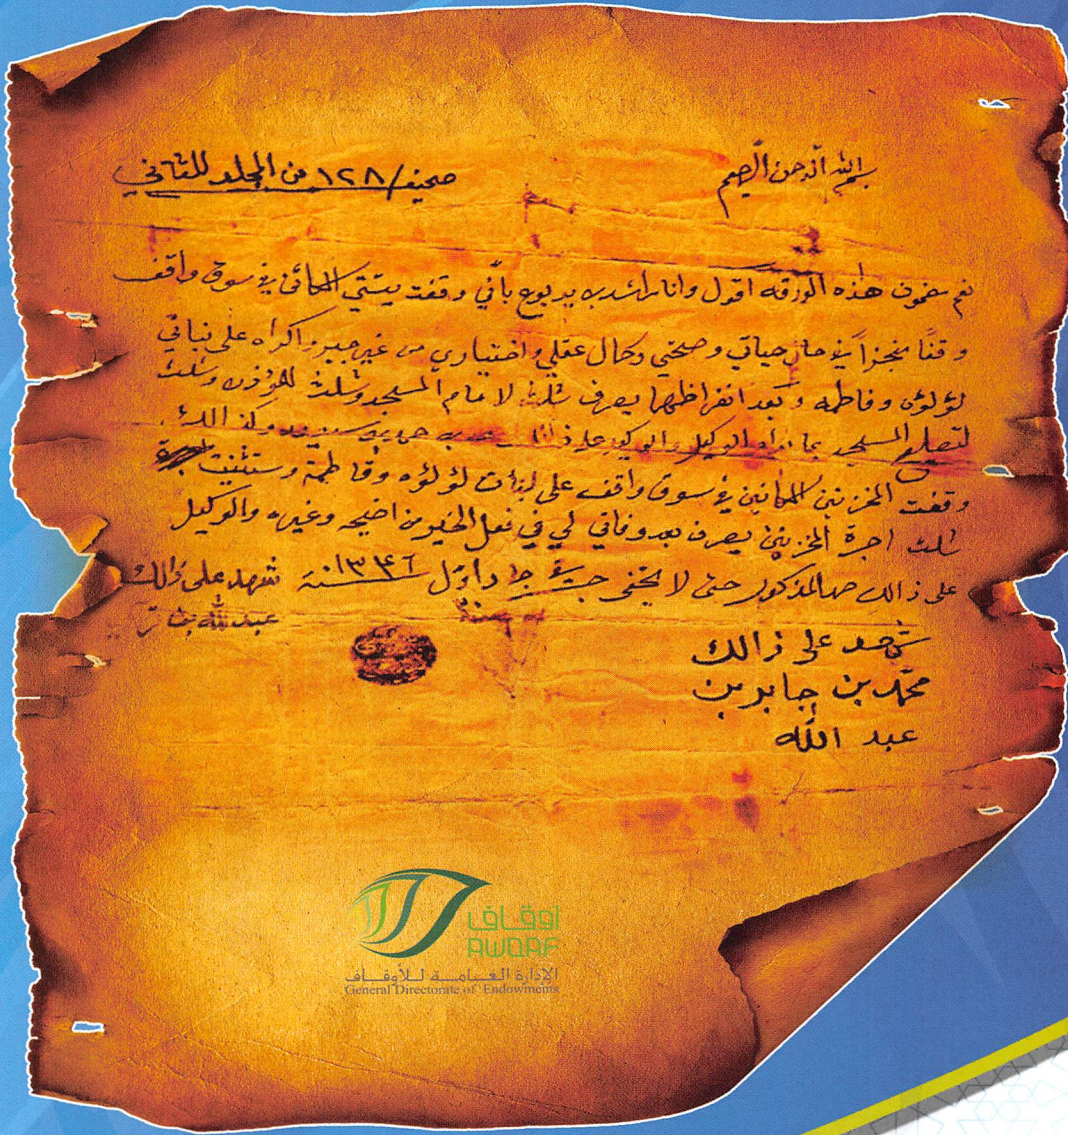 بسم الله الرحمن الرحيم
صحيفة/١٢٨ من المجلد الثاني
نعم مضمون هذه الورقه اقول وانا راشد بن بربوع بأني وقفت بيتي الكائن في سوق واقف
وقفًا منجزاً في حال حياتي وصحتي وكمال عقلي واختياري من غير جبر واكراه على بناتي
لؤلؤه وفاطمه وبعد انقراظهما يصرف ثلث لامام المسجد وثلث للمؤذن وثلث
لتصليح المسجد بما يراه الوكيل والوكيل على وكذالك
وقفت المخزنين الكائنين في سوق واقف على لبنات لؤلؤه وفاطمة وستثنيت
ثلث اجرة المخزنين يصرف بعد وفاتي لي في فعل الخير من اضحيه وغيره والوكيل
على ذالك المذكور حتى لا يخفى جرى جماد اول سنة ١٣٤٦
شهد على ذالك
عبدالله بن
شهد على ذالك
محمد بن جابر بن
عبد الله
اوقاف
AWQAF
الإدارة العامة للأوقاف
General Directorate of Endowments